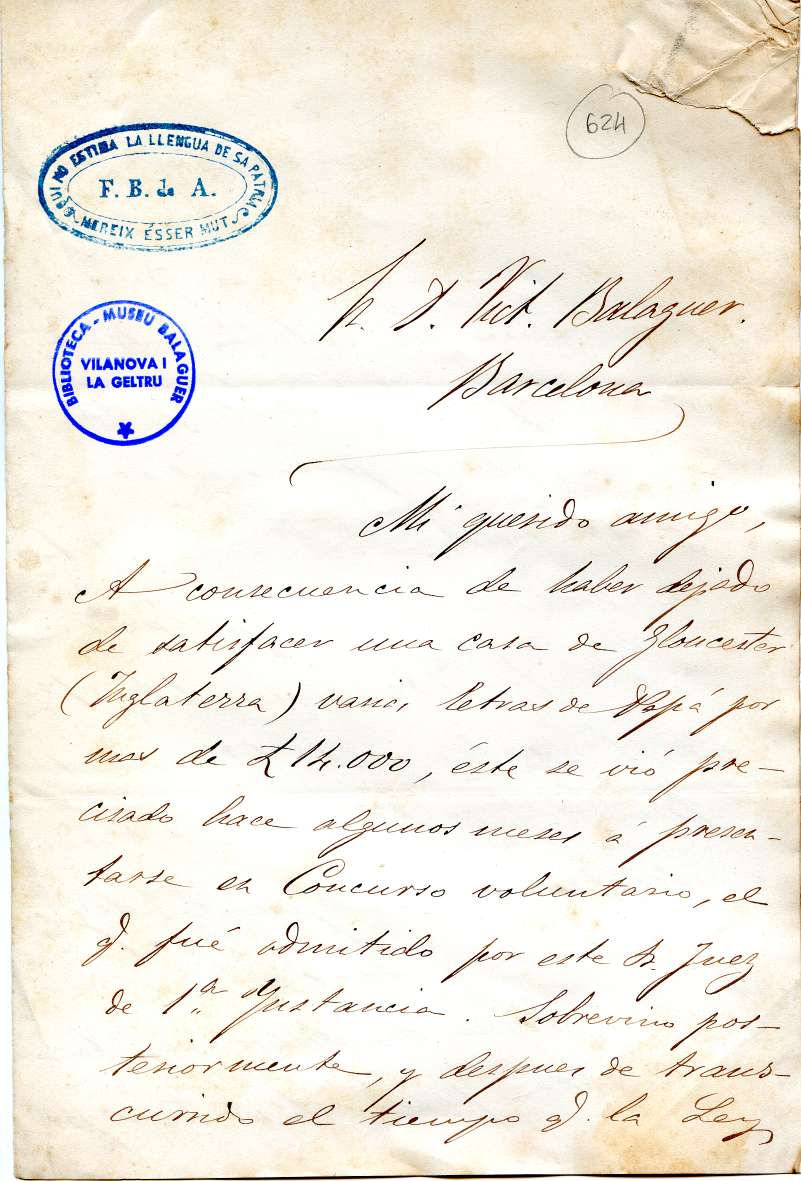 624
QUI NO ESTIMA LA LLENGUA DE SA PATRIA
F. B. de A.
MEREIX ÉSSER MUT
BIBLIOTECA - MUSEU BALAGUER
VILANOVA I
LA GELTRU
Sr. D. Vict. Balaguer.
Barcelona
Mi querido amigo,
A consecuencia de haber dejado
de satisfacer una casa de Gloucester
(Inglaterra) varias letras de Papá por
mas de £ 14.000, éste se vió pre-
cisado hace algunos meses á presen-
tarse en Concurso voluntario, el
q. fué admitido por este Sr. Juez
de 1.a Instancia. Sobrevino pos-
teriormente, y despues de trans-
currido el tiempo q. la Ley